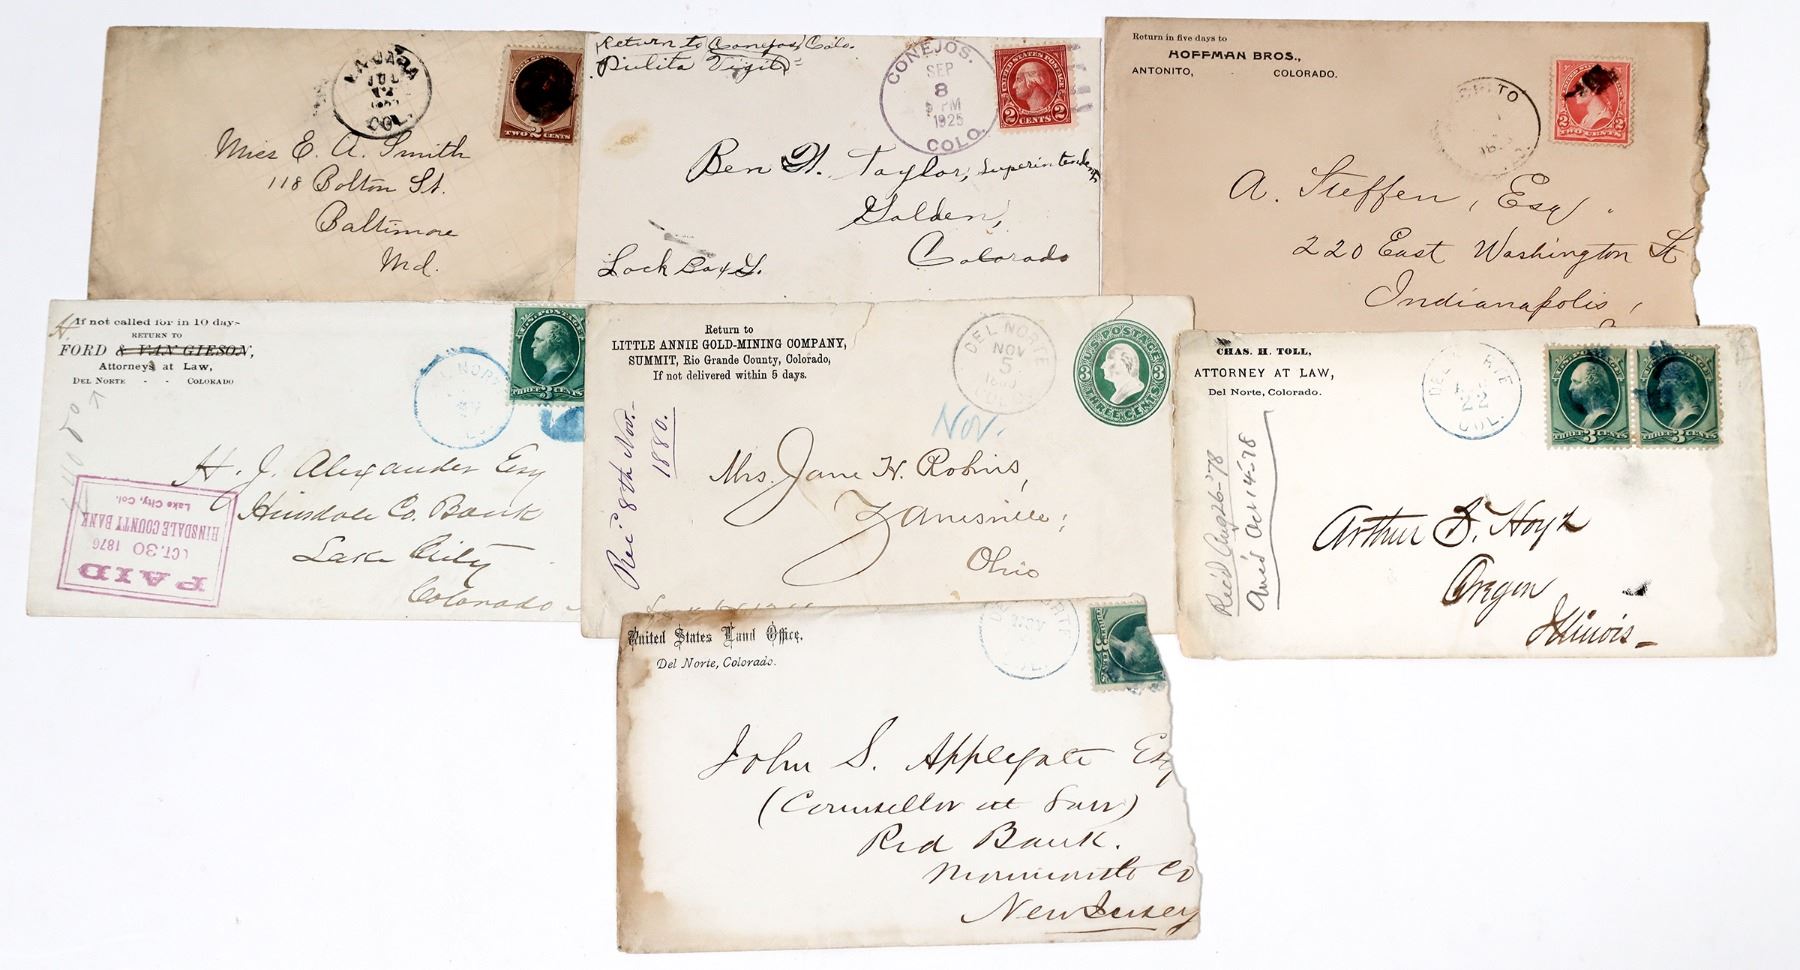 LA JARA
JUL
COL.
TWO 2 CENTS
Miss E. A. Smith
118 Bolton St.
Baltimore
Md.
Return to Conejos, Colo.
Julita Vigil
CONEJOS.
SEP
8
PM
1925
COLO.
UNITED STATES POSTAGE
2 CENTS 2
Ben H. Taylor, Superintendent
Golden,
Colorado
Lock Box G.
Return in five days to
HOFFMAN BROS.,
ANTONITO, COLORADO.
2 TWO CENTS 2
A. Steffen, Esq.
220 East Washington St
Indianapolis,
If not called for in 10 days
RETURN TO
FORD & VAN GIESON,
Attorneys at Law,
DEL NORTE - - COLORADO
U.S. POSTAGE
THREE 3 CENTS
H. J. Alexander Esq
Hinsdale Co. Bank
Lake City
Colorado
PAID
OCT. 30 1876
HINSDALE COUNTY BANK
Lake City, Col.
Return to
LITTLE ANNIE GOLD-MINING COMPANY,
SUMMIT, Rio Grande County, Colorado,
If not delivered within 5 days.
DEL NORTE
NOV
5
1880
COLO
U.S. POSTAGE
3 3
THREE CENTS
Nov.
Rec 8th Nov.-
1880.
Mrs. Jane H. Robins,
Zanesville;
Ohio
CHAS. H. TOLL,
ATTORNEY AT LAW,
Del Norte, Colorado.
DEL NORTE
22
COL.
THREE 3 CENTS
THREE 3 CENTS
Rec'd Aug 26-'78
Ans'd Oct 14-'78
Arthur S. Hoyt
Oregon
Illinois
United States Land Office,
Del Norte, Colorado.
John S. Applegate Esq
(Counsellor at Law)
Red Bank.
Monmouth Co
New Jersey